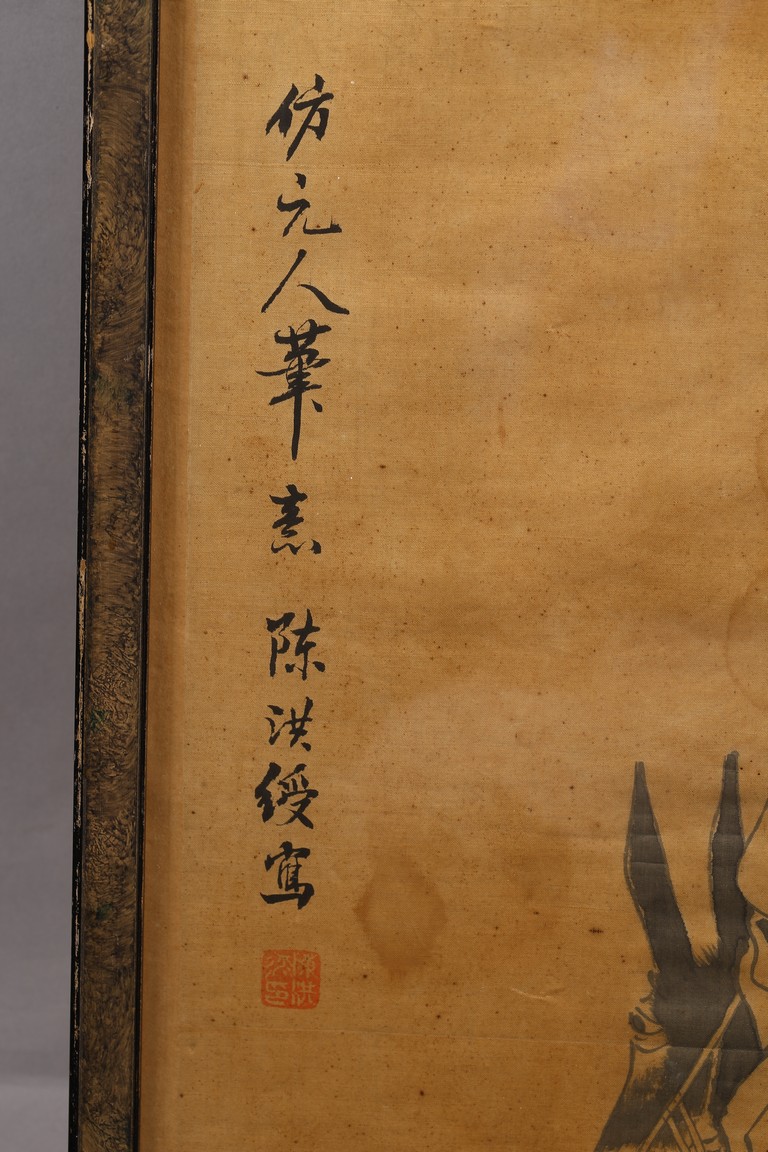 仿元人筆意 陈洪綬寫
陳洪綬印